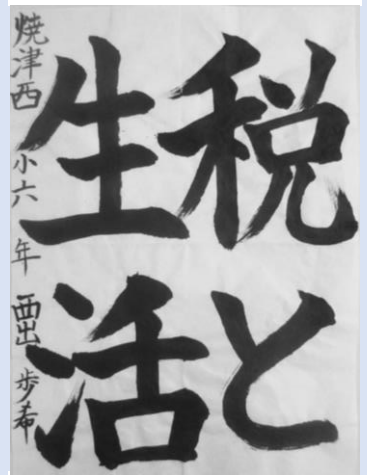 税と
生活
焼津西小六年 西出歩希